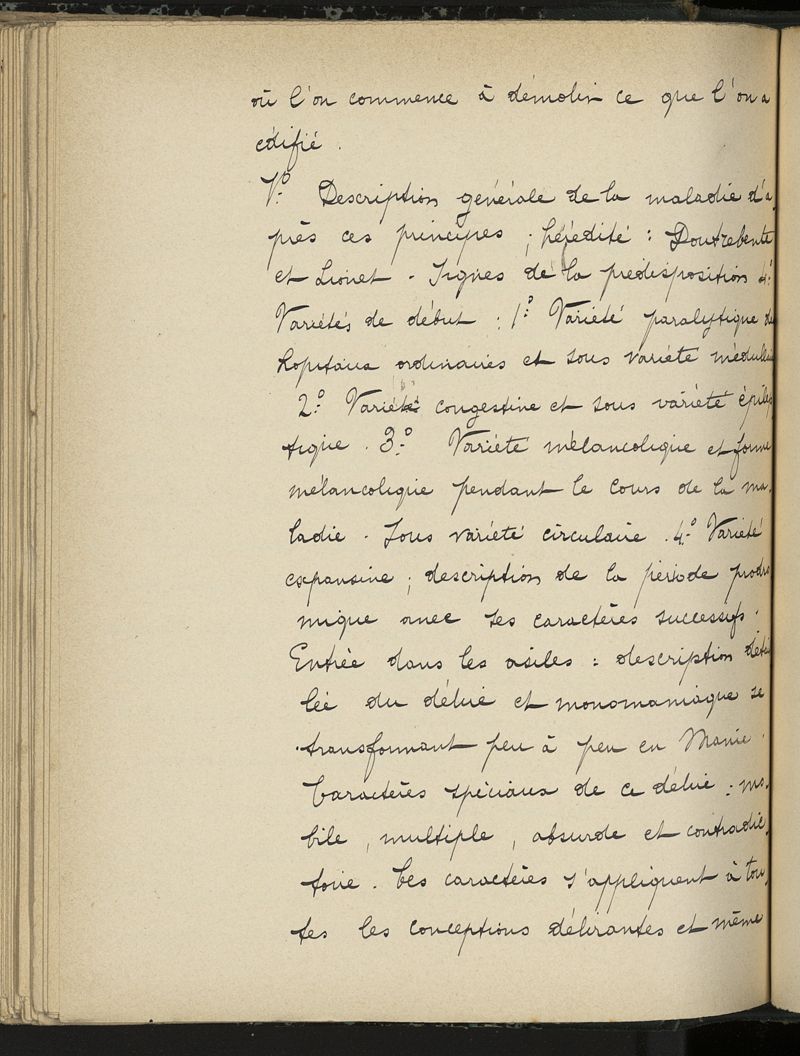 où l'on commence à démolir ce que l'on a
édifié.
V° Description générale de la maladie d'a
près ces principes ; hérédité : Doutrebente
et Lionet - Signes de la prédisposition 4°
Variétés de début : 1° Variété paralytique des
hopitaux ordinaires et sous variété médullaire
2° Variété congestive et sous variété épilep
tique. 3° Variété mélancolique et forme
mélancolique pendant le cours de la ma-
ladie. Sous variété circulaire. 4° Variété
expansive ; description de la période prodro
mique avec ses caractères successifs.
Entrée dans les asiles : description détail
lée du délire et monomaniaque se
transformant peu à peu en Manie.
Caractères spéciaux de ce délire : mo-
bile, multiple, absurde et contradic-
toire. Ces caractères s'appliquent à tou-
tes les conceptions délirantes et même